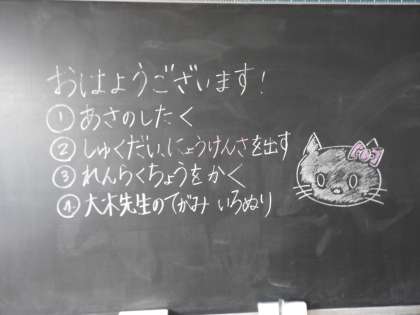 おはようございます!
①あさのしたく
②しゅくだい、にょうけんさを出す
③れんらくちょうをかく
④大木先生のてがみ いろぬり